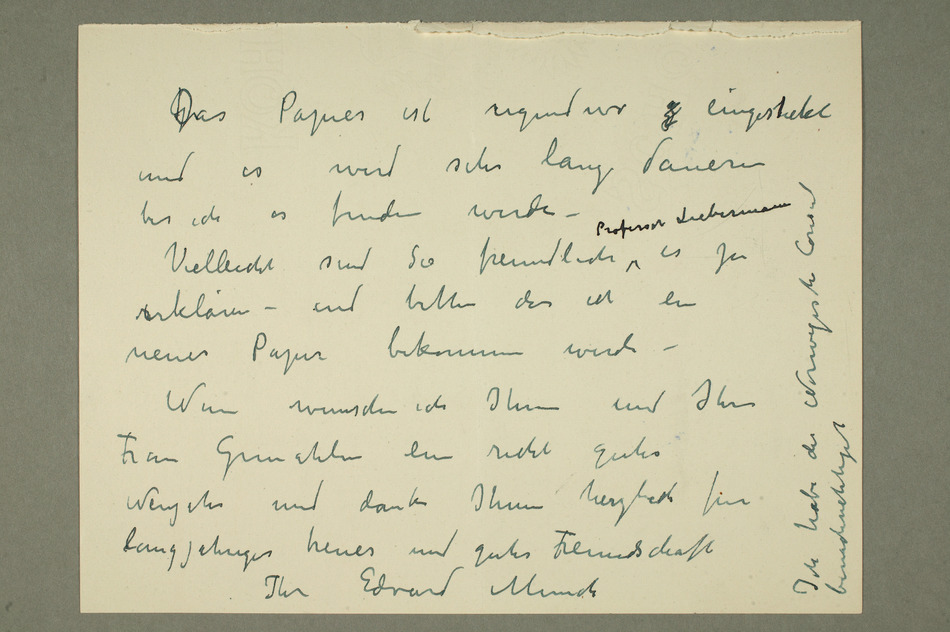 Das Papier ist irgendwo eingestekt
und es wird sehr lang dauern
bis ich es finden werde –
Professor Liebermann
Vielleicht sind Sie freundlich es zu
erklären – und bitten das ich ein
neues Papir bekommen werde –
wunsche ich Ihnen und Ihre
Frau Gemahlin ein recht gutes
und danke Ihnen herzlich für
langjahriges treues und gutes Freundschaft
Ihr Edvard Munch
Ich habe das Norwegiske Consul
benachrichtiget